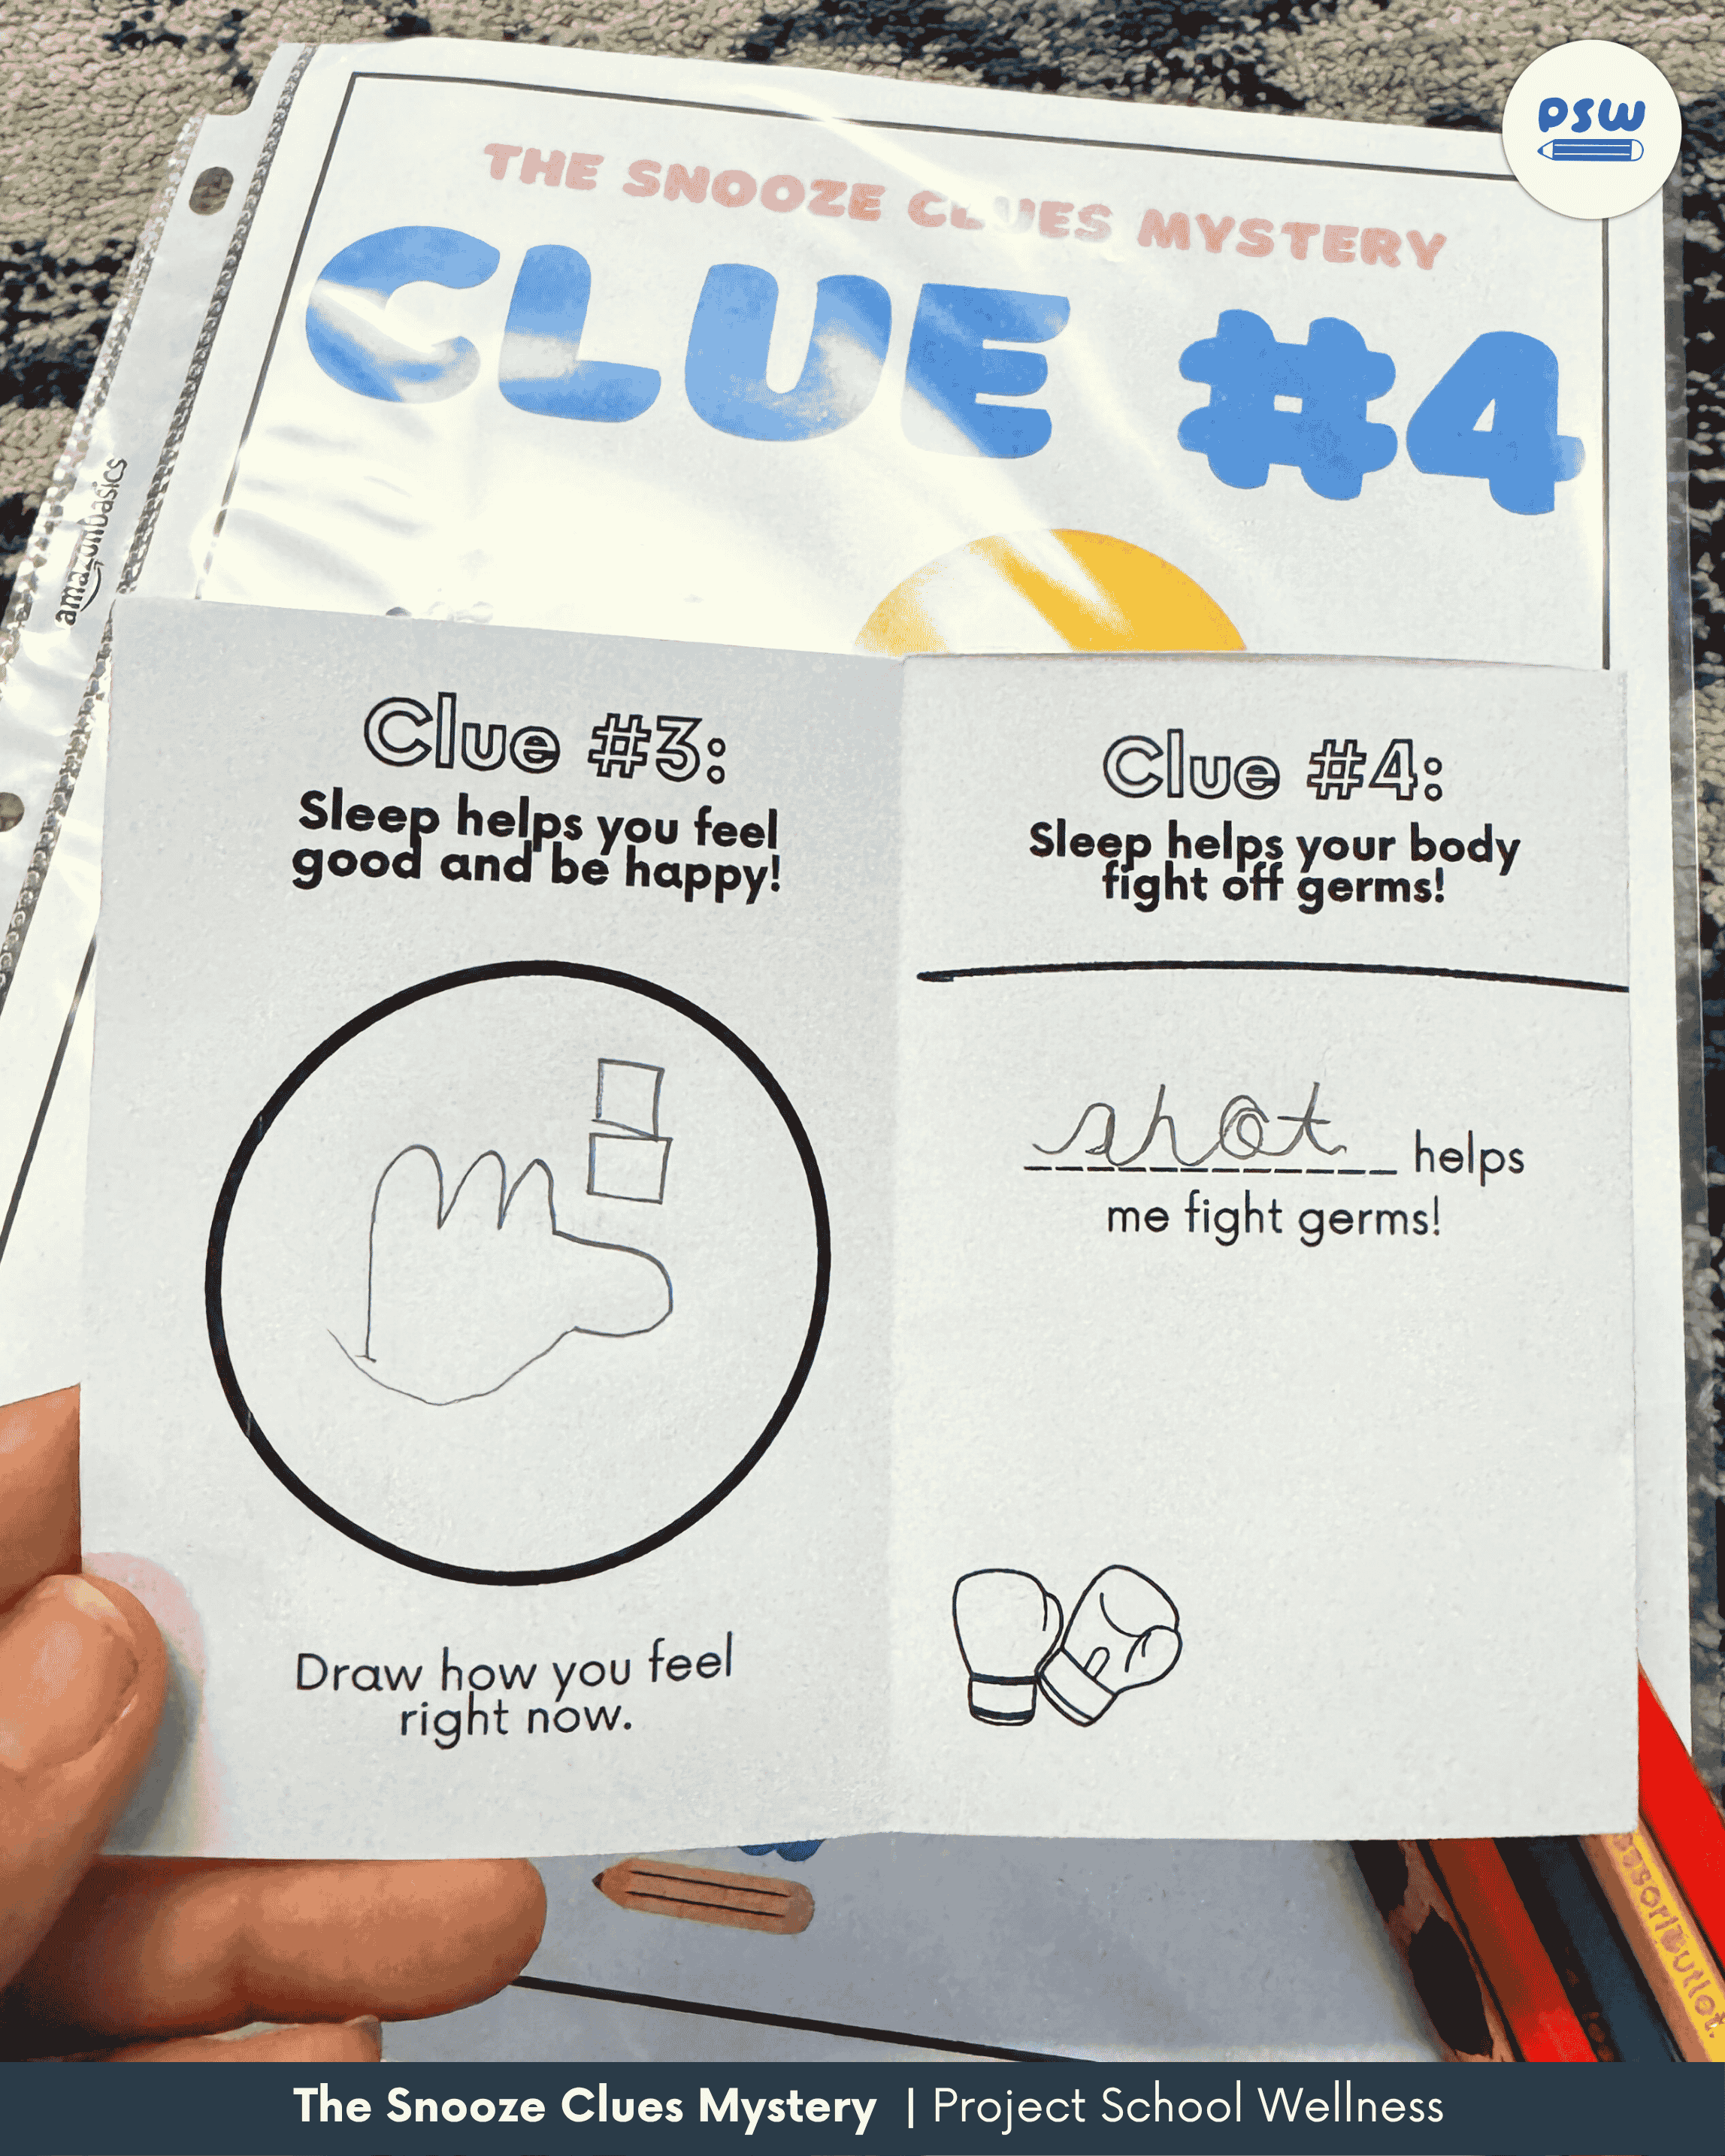 psw
THE SNOOZE CLUES MYSTERY
CLUE #4
amazonbasics
Clue #3:
Sleep helps you feel
good and be happy!
Draw how you feel
right now.
Clue #4:
Sleep helps your body
fight off germs!
shot helps
me fight germs!
The Snooze Clues Mystery | Project School Wellness